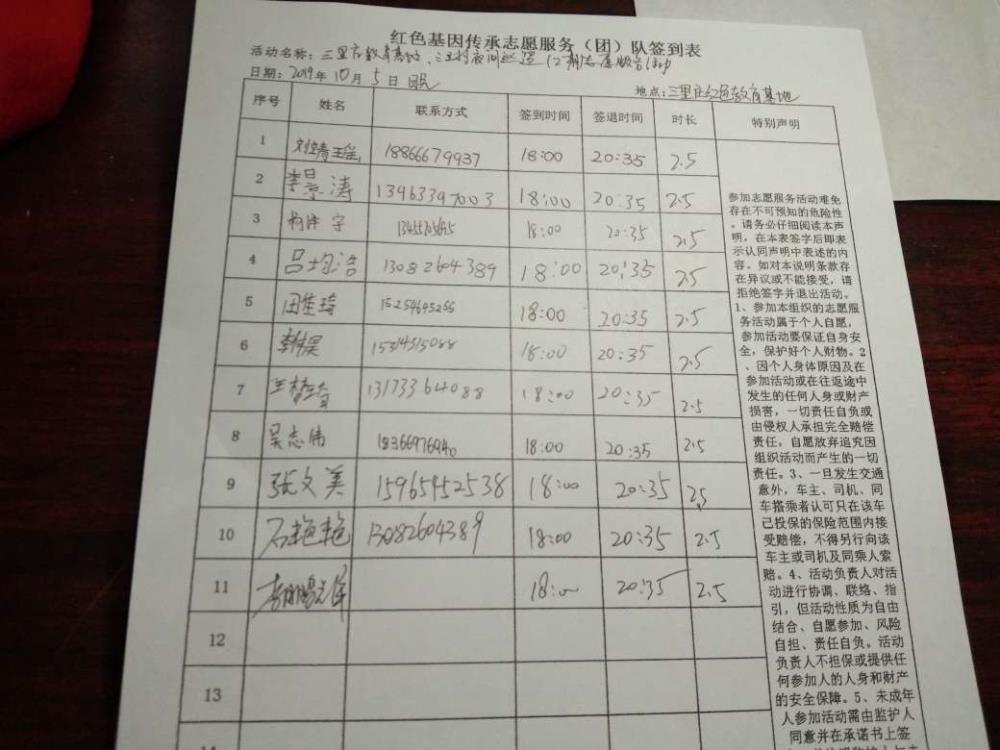 红色基因传承志愿服务（团）队签到表
活动名称：三里庄教育基地、
日期：2019年10月5日
地点：三里庄红色教育基地
序号 姓名 联系方式 签到时间 签退时间 时长 特别声明
1 18866679937 18:00 20:35 2.5
2 李景涛 13963397003 18:00 20:35 2.5
3 18:00 20:35 2.5
4 吕均浩 13082604389 18:00 20:35 2.5
5 田佳琦 15254645256 18:00 20:35 2.5
6 18:00 20:35 2.5
7 13173364088 18:00 20:35 2.5
8 吴志伟 18366976940 18:00 20:35 2.5
9 张文美 15965152538 18:00 20:35 2.5
10 石艳艳 13082604389 18:00 20:35 2.5
11 18:00 20:35 2.5
12
13
参加志愿服务活动难免
存在不可预知的危险性
。请务必仔细阅读本声
明，在本表签字后即表
示认同声明中表述的内
容。如对本说明条款存
在异议或不能接受，请
拒绝签字并退出活动。
1、参加本组织的志愿服
务活动属于个人自愿，
参加活动要保证自身安
全，保护好个人财物。2
、因个人身体原因及在
参加活动或在往返途中
发生的任何人身或财产
损害，一切责任自负或
由侵权人承担完全赔偿
责任，自愿放弃追究因
组织活动而产生的一切
责任。3、一旦发生交通
意外，车主、司机、同
车搭乘者认可只在该车
已投保的保险范围内接
受赔偿，不得另行向该
车主或司机及同乘人索
赔。4、活动负责人对活
动进行协调、联络、指
引，但活动性质为自由
结合、自愿参加、风险
自担、责任自负。活动
负责人不担保或提供任
何参加人的人身和财产
的安全保障。5、未成年
人参加活动需由监护人
同意并在承诺书上签